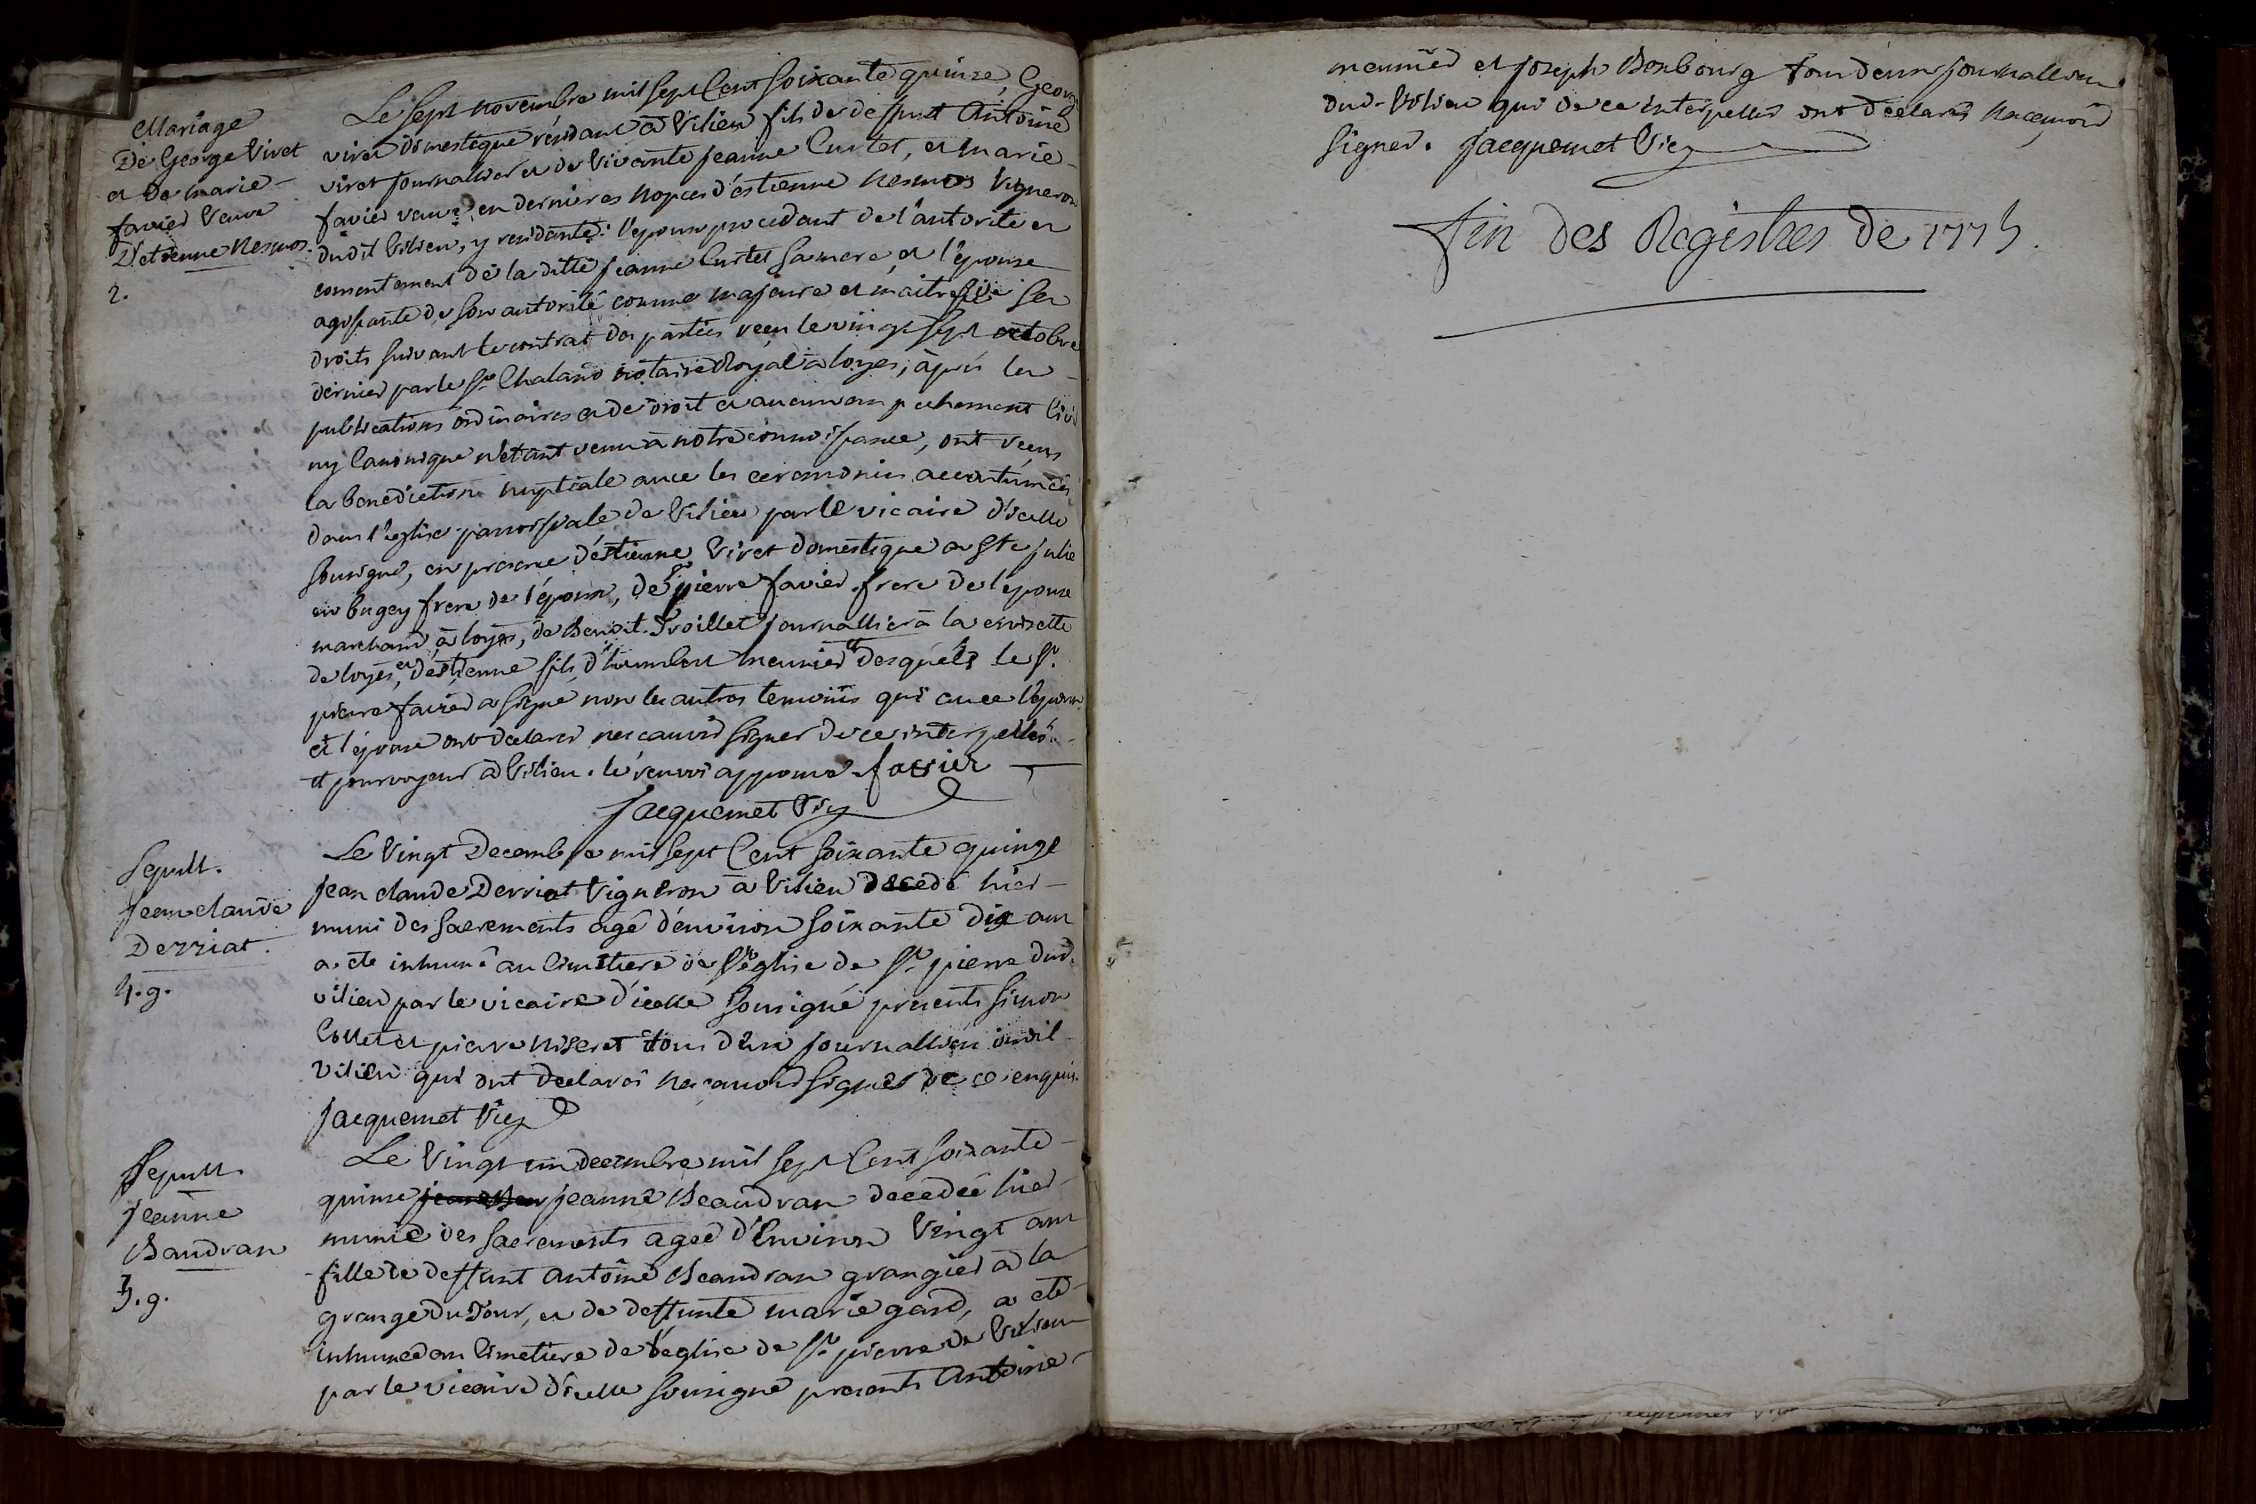 Mariage
De George Vivet
et De marie
favier Veuve
D'etienne Nesmos.
2.
Le sept novembre mil sept Cent soixante quinze, George
vivet Domestique résidant à Vilieu fils de deffunt Antoine
vivet journallier et de Vivante jeanne Curtet, et marie
favier veuve en dernieres nopces d'estienne Nesmos Vigneron
dudit Vilieu, y residante: l'epoux procedant de l'autorité et
consentement de la ditte jeanne Curtet sa mere, et l'epouse
agissante de son autorité comme majeure et maitresse de ses
droits suivant le contrat des parties reçu le vingt sept octobre
dernier par le Sr. Chaland notaire Royal à loyes, après les
publications ordinaires et de droit et aucun empechement Civil
ny Canonique n'etant venu à notre connoissance, ont reçus
la benediction nuptiale avec les ceremonies accoutumées
dans l'eglise parroissiale de Vilieu par le vicaire d'icelle
sousigné, en presence d'éstienne Vivet domestique a Ste julie
en bugey frere de l'époux, de Sr pierre favier frere de l'epouse
marchand à loyes, de Benoit Troillet journallier à la croisette
de loyes, et d'éstienne fils d'humbert meunier desquels le Sr.
pierre favier a signé non les autres temoins qui avec l'époux
et l'épouse ont declaré ne sçavoir signer de ce interpellés.
et pourvoyeur à Vilieu. le renvoi approuvé favier
Jacquemet Vic
Sepult.
Jean claude
Derriat.
4.g.
Le Vingt Decembre mil sept Cent soixante quinze
jean claude Derriat Vigneron à Vilieu decedé hier
muni des sacrements agé d'environ soixante dix ans
a été inhumé au Cimetiere de l'église de St. pierre dud.
vilieu par le vicaire d'icelle sousigné presents simon
Collet et pierre Niseret tous deux journalliers dudit
Vilieu qui ont declaré ne sçavoir signer de ce enquis.
Jacquemet Vic
Sepult.
Jeanne
Baudran
5.g.
Le Vingt un decembre mil sept Cent soixante
quinze jeanne Beaudran decedée hier
munie des sacrements agée d'Environ Vingt ans
fille de deffunt Antoine Beaudran grangier à la
grange du Four, et de deffunte marie gard, a été
inhumée au Cimetiere de l'église de St. pierre de Vilieu
par le vicaire d'icelle sousigné presents Antoine
meunier et joseph Bourbourg tous deux journalliers
dud. Vilieu qui de ce interpellés ont declaré ne sçavoir
signer. Jacquemet Vic
Fin des Registres de 1775.